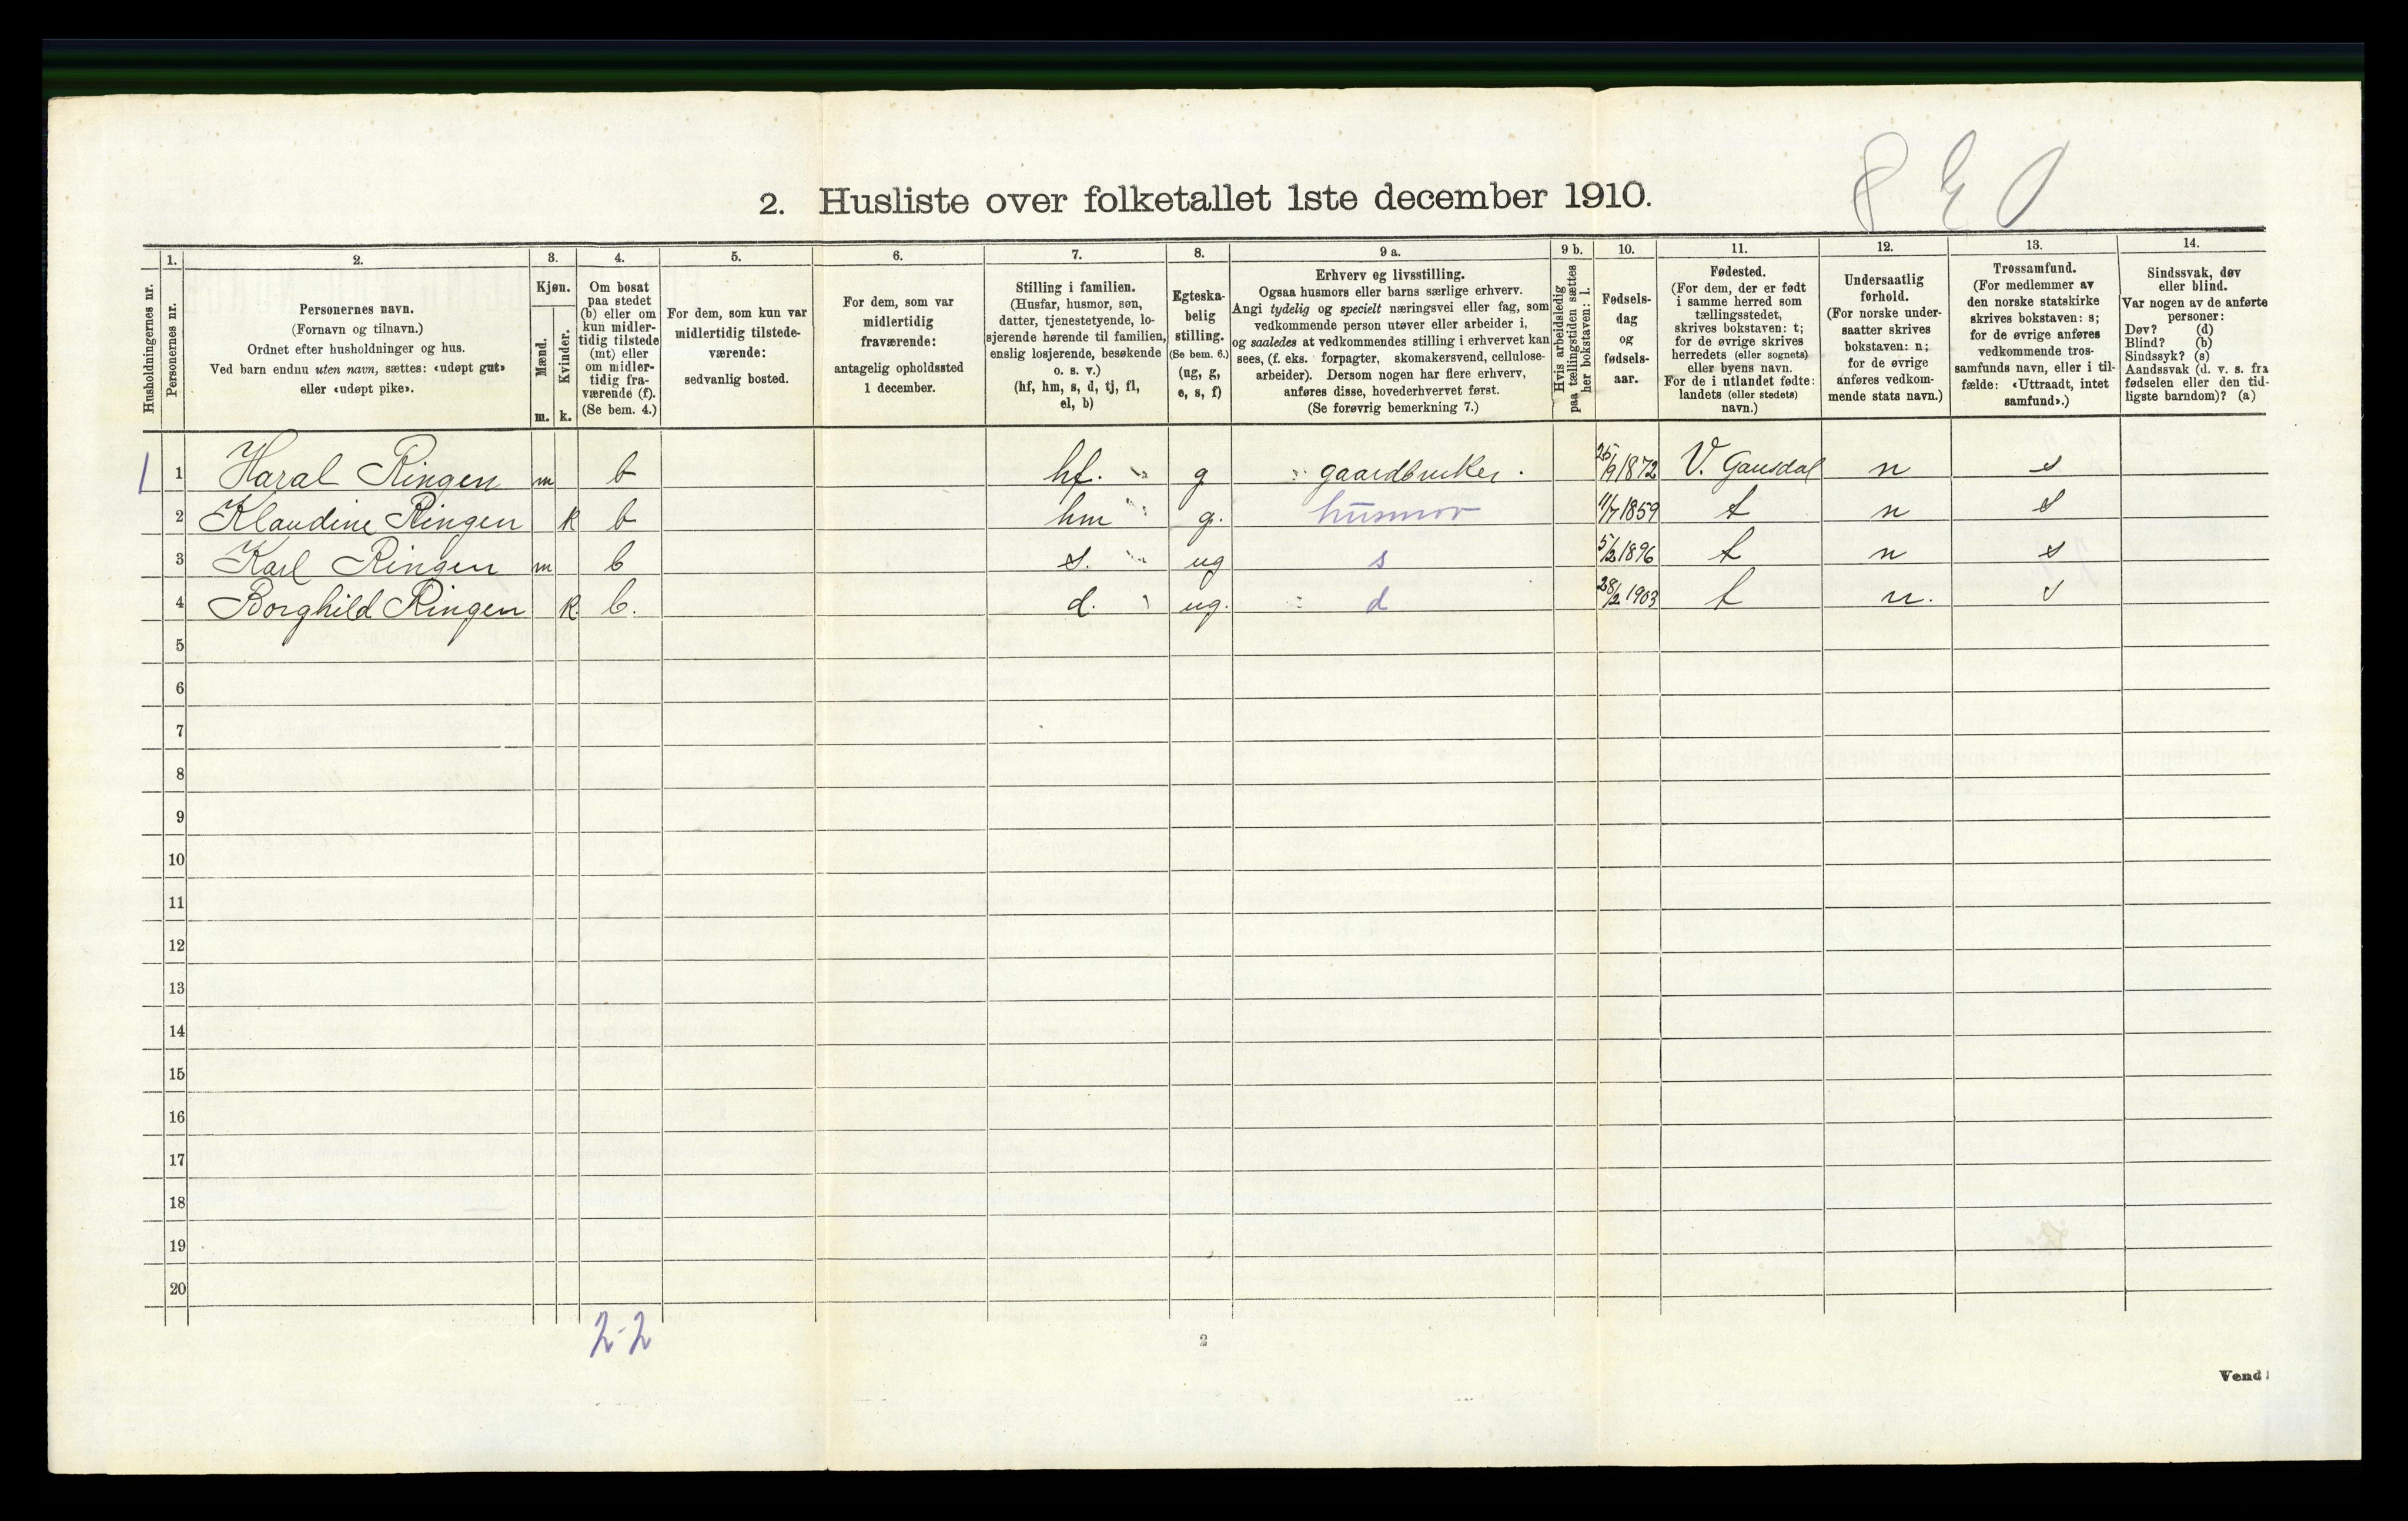 8 E 0
2. Husliste over folketallet 1ste december 1910.
1. 2. 3. 4. 5. 6. 7. 8. 9 a. 9 b. 10. 11. 12. 13. 14.
Husholdningernes nr.
Personernes nr.
Personernes navn.
(Fornavn og tilnavn.)
Ordnet efter husholdninger og hus.
Ved barn endnu uten navn, sættes: «udøpt gut»
eller «udøpt pike».
Kjøn.
Mænd.
Kvinder.
m. k.
Om bosat
paa stedet
(b) eller om
kun midler-
tidig tilstede
(mt) eller
om midler-
tidig fra-
værende (f).
(Se bem. 4.)
For dem, som kun var
midlertidig tilstede-
værende:
sedvanlig bosted.
For dem, som var
midlertidig
fraværende:
antagelig opholdssted
1 december.
Stilling i familien.
(Husfar, husmor, søn,
datter, tjenestetyende, lo-
sjerende hørende til familien,
enslig losjerende, besøkende
o. s. v.)
(hf, hm, s, d, tj, fl,
el, b)
Egteska-
belig
stilling.
(Se bem. 6.)
(ug, g,
e, s, f)
Erhverv og livsstilling.
Ogsaa husmors eller barns særlige erhverv.
Angi tydelig og specielt næringsvei eller fag, som
vedkommende person utøver eller arbeider i,
og saaledes at vedkommendes stilling i erhvervet kan
sees, (f. eks. forpagter, skomakersvend, cellulose-
arbeider). Dersom nogen har flere erhverv,
anføres disse, hovederhvervet først.
(Se forøvrig bemerkning 7.)
Hvis arbeidsledig
paa tællingstiden sættes
her bokstaven: l.
Fødsels-
dag
og
fødsels-
aar.
Fødested.
(For dem, der er født
i samme herred som
tællingsstedet,
skrives bokstaven: t;
for de øvrige skrives
herredets (eller sognets)
eller byens navn.
For de i utlandet fødte:
landets (eller stedets)
navn.)
Undersaatlig
forhold.
(For norske under-
saatter skrives
bokstaven: n;
for de øvrige
anføres vedkom-
mende stats navn.)
Trossamfund.
(For medlemmer av
den norske statskirke
skrives bokstaven: s;
for de øvrige anføres
vedkommende tros-
samfunds navn, eller i til-
fælde: «Uttraadt, intet
samfund».)
Sindssvak, døv
eller blind.
Var nogen av de anførte
personer:
Døv? (d)
Blind? (b)
Sindssyk? (s)
Aandssvak (d. v. s. fra
fødselen eller den tid-
ligste barndom)? (a)
1 1 Haral Ringen m b hf. g gaardbruker. 25/9 1872 V. Gausdal n s
2 Klaudine Ringen k b hm g. husmor 11/7 1859 t n s
3 Karl Ringen m b s. ug s 5/2 1896 t n s
4 Borghild Ringen k. b. d. ug. d 28/2 1903 t n. s
5
6
7
8
9
10
11
12
13
14
15
16
17
18
19
20
2-2
2
Vend!